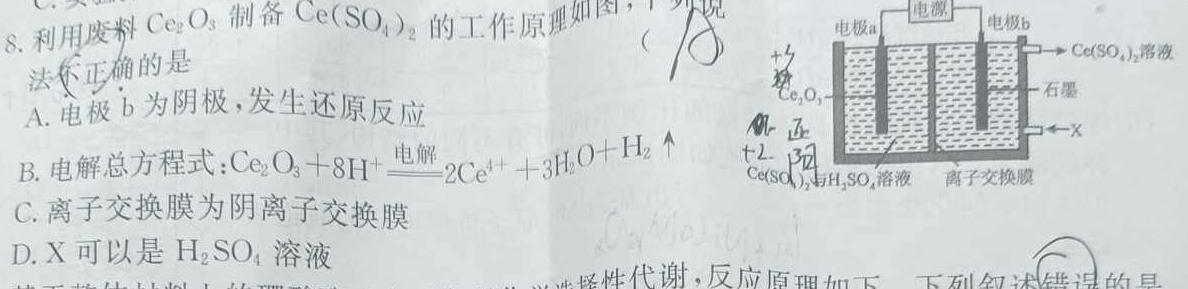 8. 利用废料 Ce₂O₃ 制备 Ce(SO₄)₂ 的工作原理如图,下列说
法不正确的是 ( B
A. 电极 b 为阴极,发生还原反应
B. 电解总方程式:Ce₂O₃+8H⁺ ══电解══ 2Ce⁴⁺+3H₂O+H₂↑
C. 离子交换膜为阴离子交换膜
D. X 可以是 H₂SO₄ 溶液
选择性代谢,反应原理如下,下列叙述错误的是
电源
电极a
电极b
Ce(SO₄)₂溶液
+3
Ce₂O₃
石墨
X
正
+2
阳
Ce(SO₄)₂与H₂SO₄溶液
离子交换膜